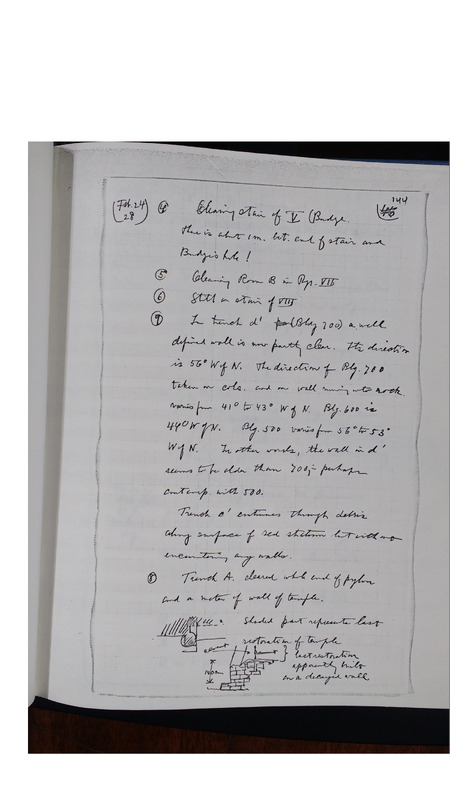 Feb. 24
28
144
④ Clearing stair of V (Budge
there is about 1m. bet. end of stair and
Budge's hole!
⑤ Clearing Room B in Pyr. VII
⑥ Still on stair of VIII
⑦ In trench d' (Bldg 700) a well
defined wall is now partly clear. Its direction
is 56° W of N. The direction of Blg. 700
taken on cols. and on wall running into rock
varies from 41° to 43° W of N. Blg. 600 is
44° W of N. Blg. 500 varies from 56° to 53°
W of N. In other words, the wall in d'
seems to be older than 700, perhaps
contemp. with 500.
Trench c' continues through debris
along surface of red stratum but without
encountering any walls.
⑧ Trench A. cleared whole end of pylon
and a meter of wall of temple.
Shaded part represents last
restoration of temple
last restoration
apparently built
on a decayed wall